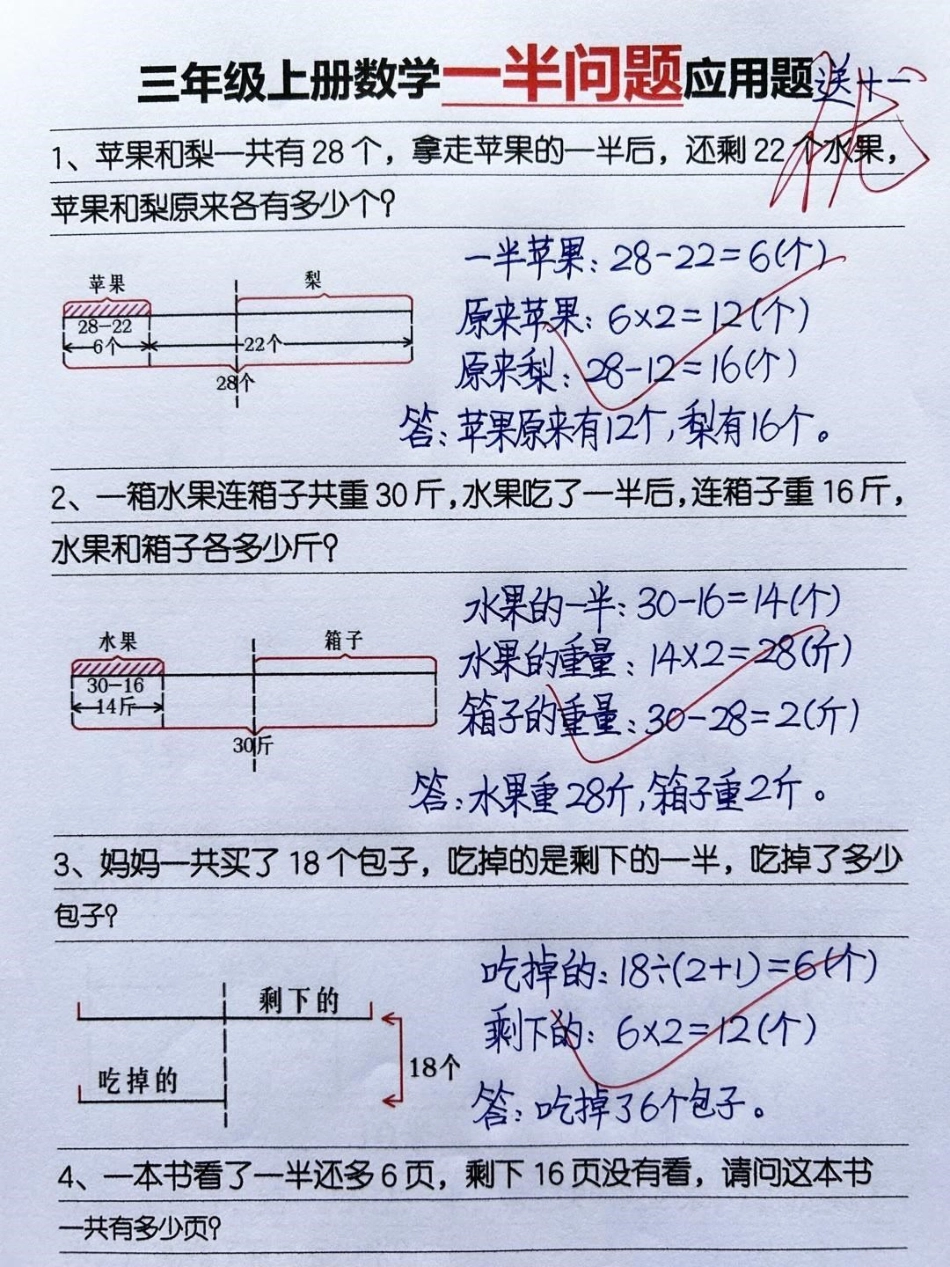 三年级上册数学一半问题应用题送十一
优
1、苹果和梨一共有28个，拿走苹果的一半后，还剩22个水果，
苹果和梨原来各有多少个？
苹果 梨
28-22
6个 22个
28个
一半苹果：28-22=6(个)
原来苹果：6×2=12(个)
原来梨：28-12=16(个)
答：苹果原来有12个，梨有16个。
2、一箱水果连箱子共重30斤，水果吃了一半后，连箱子重16斤，
水果和箱子各多少斤？
水果 箱子
30-16
14斤
30斤
水果的一半：30-16=14(个)
水果的重量：14×2=28(斤)
箱子的重量：30-28=2(斤)
答：水果重28斤，箱子重2斤。
3、妈妈一共买了18个包子，吃掉的是剩下的一半，吃掉了多少
包子？
剩下的
吃掉的
18个
吃掉的：18÷(2+1)=6(个)
剩下的：6×2=12(个)
答：吃掉了6个包子。
4、一本书看了一半还多6页，剩下16页没有看，请问这本书
一共有多少页？